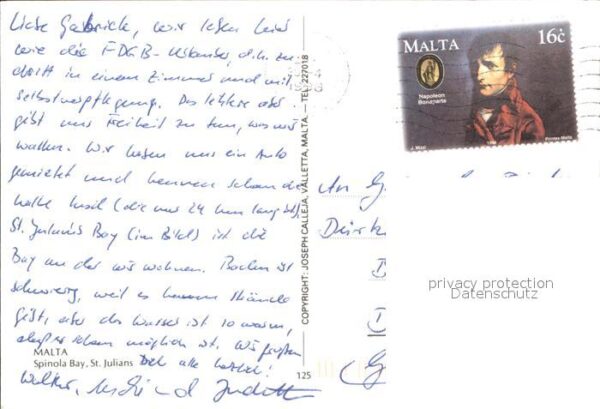 Liebe Gabriele, wir leben hier
wie die FDGB-Urlauber, d.h. zu
dritt in einem Zimmer und mit
Selbstverpflegung. Das letztere aber
gibt uns Freiheit zu tun, was wir
wollen. Wir haben uns ein Auto
gemietet und kennen schon die
halbe Insel (die nur 27 km lang ist).
St. Julian's Bay (im Bild) ist die
Bay an der wir wohnen. Baden ist
schwierig, weil es kaum Strände
gibt, aber das Wasser ist so warm,
daß es schon möglich ist. Wir grüßen
Dich alle herzlich!
und Judith
MALTA
Spinola Bay, St. Julians
125
COPYRIGHT: JOSEPH CALLEJA, VALLETTA, MALTA. — TEL. 227018
MALTA 16c
Napoleon
Bonaparte
J. Mizzi
Printex Malta
An G
privacy protection
Datenschutz